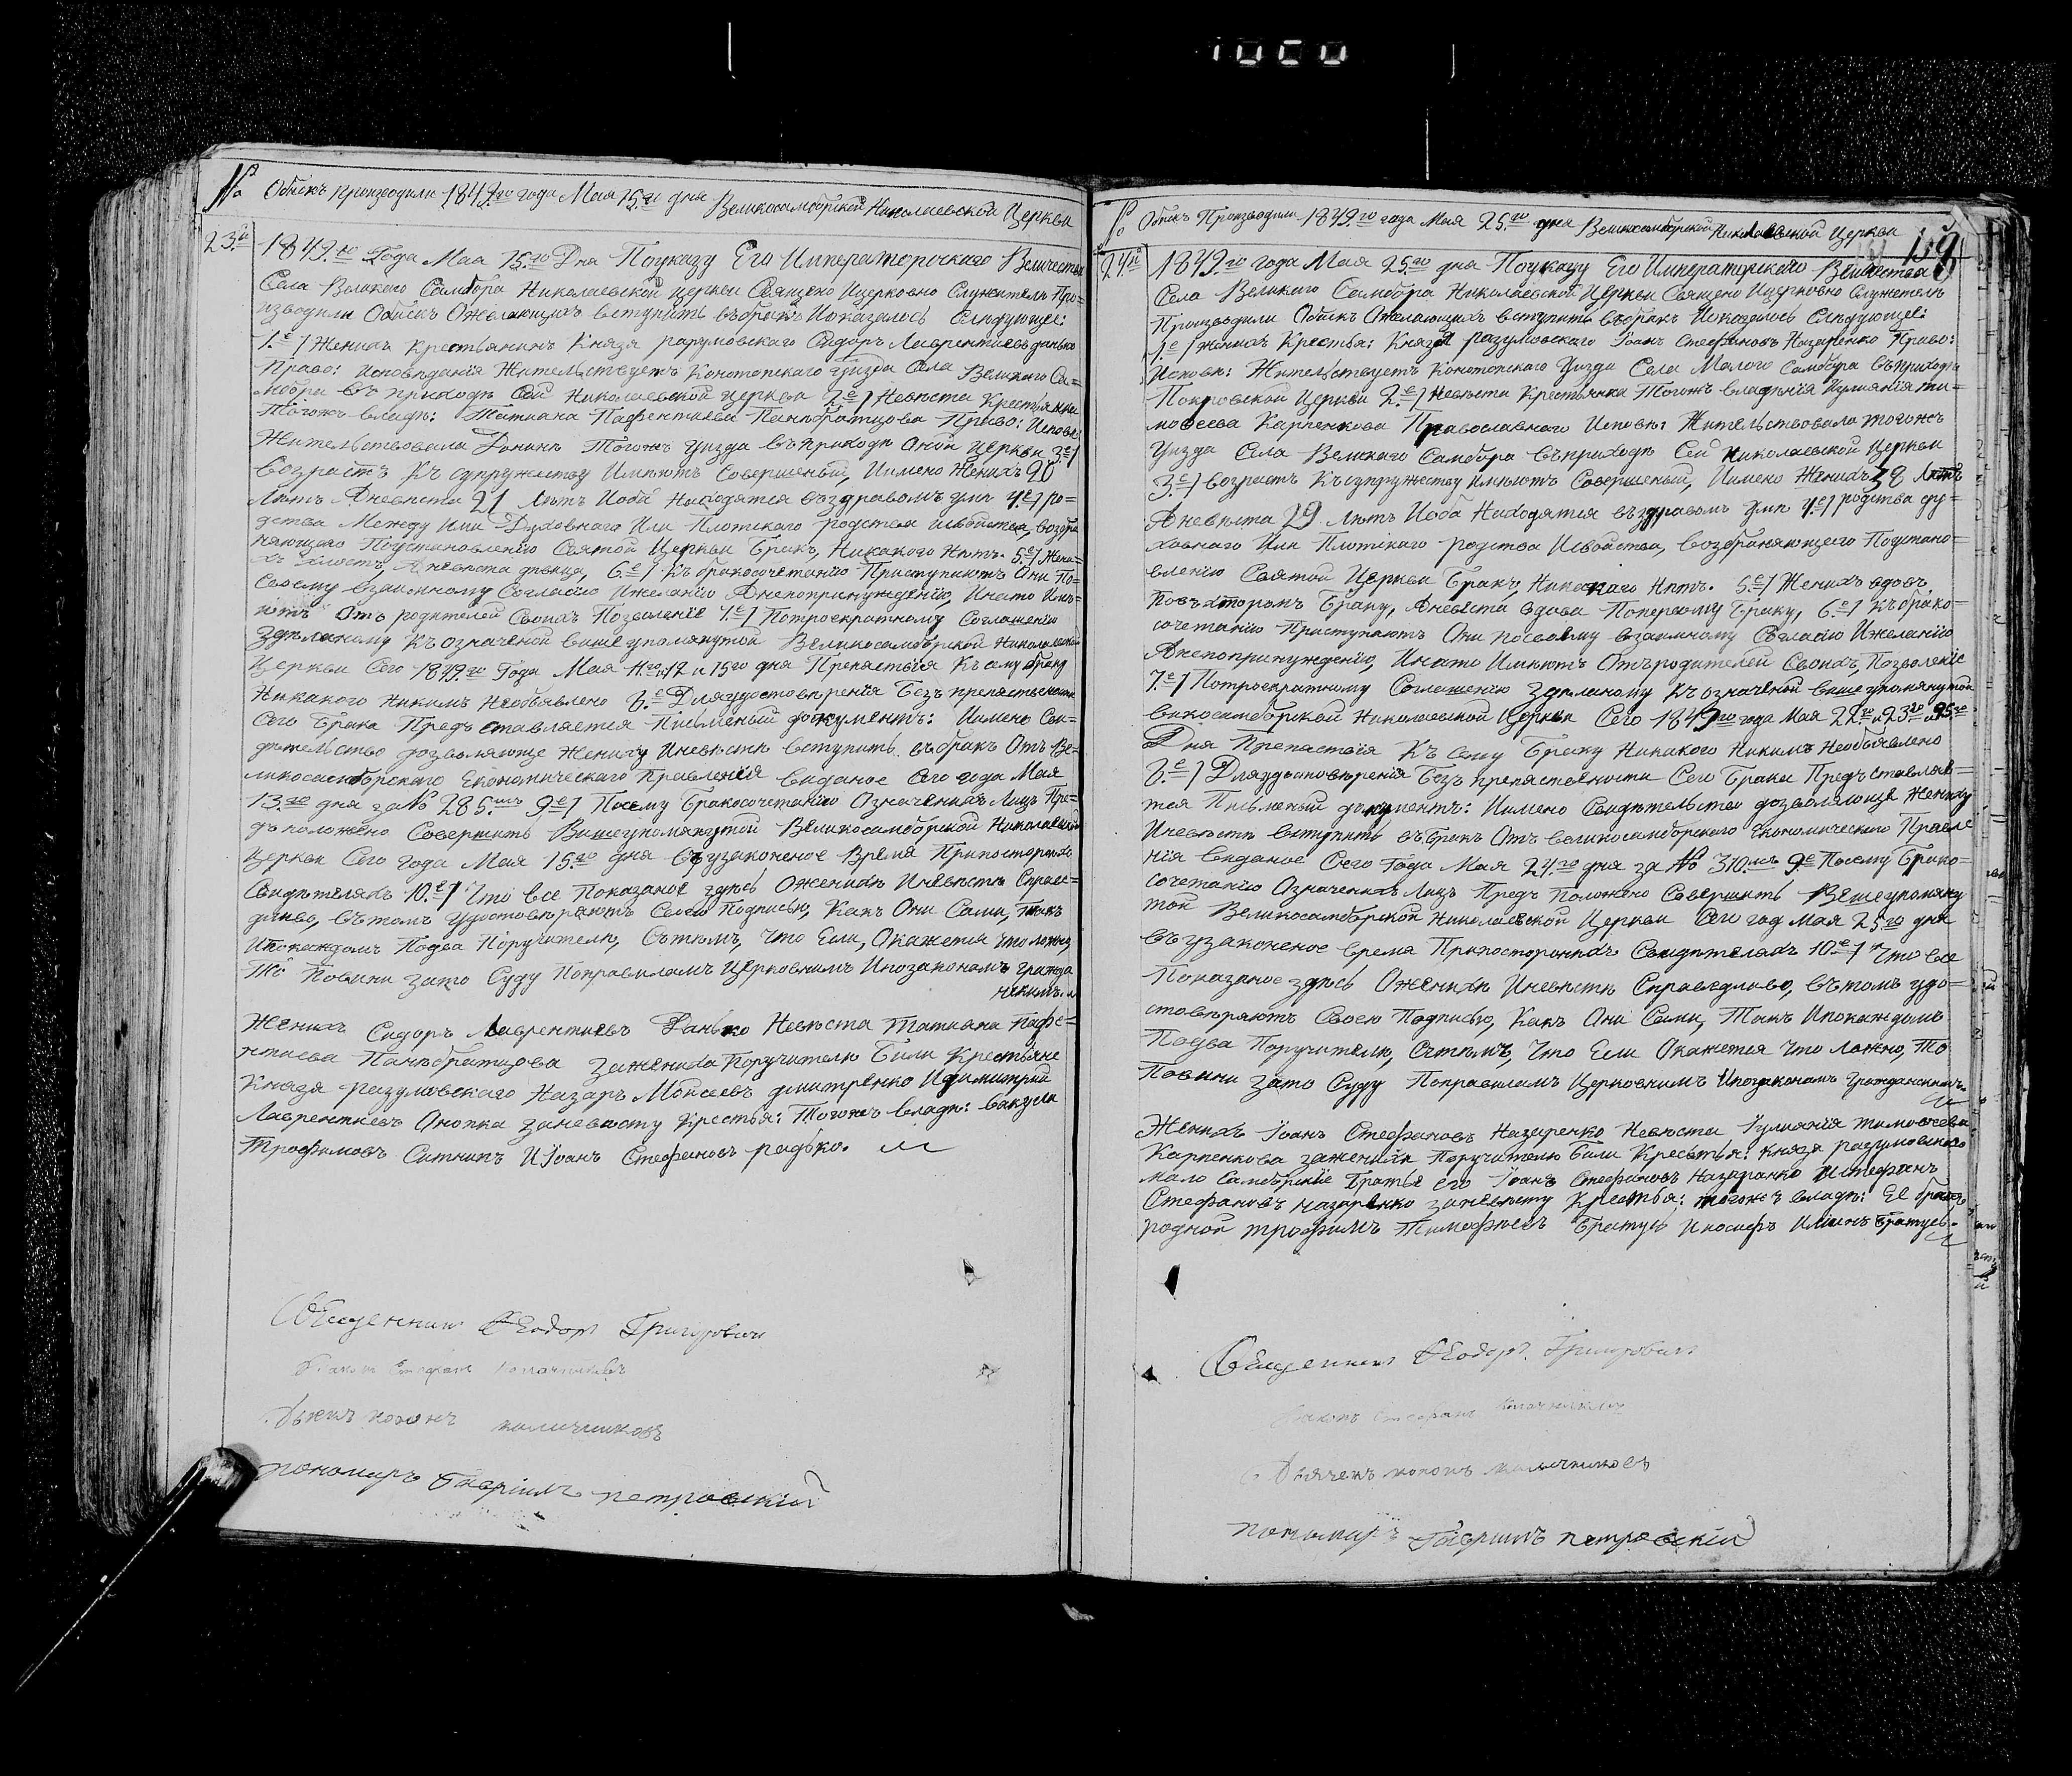 № Обискъ производили 1849.го года Мая 15.го дня Великосамборской Николаевской Церкви
23.й
1849.го Года Мая 15.го Дня Поуказу Его Императорскаго Величества
Села Великого Самбора Николаевской церкви Священо Ицерковно Служители Про=
изводили Обискъ Ожелающихъ вступить въбракъ Иоказалось Слѣдующее:
1.е/ Женихъ Крестьянинъ Князя разумовскаго Сидоръ Лаврентиевъ данько
Право: исповѣдания Жительствуетъ Конотопскаго уизда Села Великого Са=
мбора въ приходѣ Сей Николаевской церкви 2.е/ Невѣста Крестьянка
Тогожъ владѣ: Татиана Пафентиева Панибратцова Право: Исповѣ:
Жительствовала Донинѣ Тогожъ уизда въприходѣ Оной Церкви 3.е/
возрастъ Къ супружеству Имѣютъ Совершеный, Иимено Женихъ 20
Лѣтъ Аневѣста 21 лѣтъ Иоба Находятся въздравомъ умѣ 4.е/ ро=
дства Между Ими Духовнаго Или Плотскаго родства исвойства, возбра
няющаго Поустановлению Святой Церкви Бракъ, Никакого Нѣтъ. 5.е/ Жени=
хъ холостъ, Аневѣста дѣвица, 6.е/ Къ бракосочетанию Приступаютъ Они По=
своему взаимному Согласию Ижеланию Анепопринуждению, Инато Имѣ=
ютъ Отъ родителей Своихъ Позволение 7.е/ Потроекратному Соглашению
Здѣланому Къ означеной вишеупомянутой Великосамборской Николаевской
Церкви Сего 1849.го Года Мая 11.го 12 и 15го дня Препяствия Къ ему браку
Никакого Никимъ Необъявлено 8.е Дляудостовѣрения Безъ препяственности
Сего брака Предъ ставляется Писменый документъ: Иимено Сви=
дѣтельство дозволяюще Жениху Иневѣстѣ вступить въбракъ Отъ Ве=
ликосамборского Економическаго Правления виданое Сего года Мая
13.го дня за№ 285.мъ 9.е/ Посему Бракосочетанию Означенихъ Лицъ Пре=
дъположено Совершить Вишеупомянутой Великосамборской Николаевской
церкви Сего года Мая 15.го дня въузаконеное Время Припосторонихъ
Свидѣтеляхъ 10.е/ Что все Показаное здѣсь Оженихѣ Иневѣстѣ Справе=
дливо, въ томъ удостовѣряютъ Своею Подписью, Какъ Они Сами, такъ
Ипокаждомъ Подва Поручителя, Сътѣмъ, Что Если, Окажется что ложно
То Повини зато Суду Поправиламъ Церковнимъ Ипозаконамъ гражда
нскимъ.
Женихъ Сидоръ Лаврентиевъ Данько Невѣста Татиана Пафе=
нтиева Панибратцова Зажениха Поручители Били Крестьяне
Князя разумовскаго Назаръ Моисеевъ дмитренко Идимитрий
Лаврентиевъ Онопка Заневѣсту Крестья: Тогожъ владѣ: Вакула
Трофимовъ Ситникъ Иіоанъ Стефановъ радько.
Священникъ Феодоръ Григорович
Стефанъ
пономаръ Гавриилъ петровский
№ Обискъ Производили 1849.го года Мая 25.го дня Великосамборской Николаевской Церкви
159
24.й
1849.го года Мая 25.го дня Поуказу Его Императорскаго Величества
Села Великаго Самбора Николаевской Церкви Священо Ицерковно Служители
Производили Обискъ Ожелающихъ вступить въбракъ Иоказалось Слѣдующее:
1.е/ женихъ Крестья: Князя разумовскаго Іоанъ Стефановъ Назаренко Право:
Исповѣ: Жительствуетъ Конотопскаго уизда Села Малого Самбора въприходѣ
Покровской Церкви 2.е/ Невѣста Крестьянка Тогожъ владѣния Иулияния ти=
мофеева Карпенкова Православнаго Исповѣ: Жительствовала тогожъ
Уизда Села Великаго Самбора въприходѣ Сей николаевской Церкви
3.е/ возрастъ Къ супружеству Имѣютъ Совершеный, Иимено Женихъ 38 Лѣтъ
Аневѣста 29 лѣтъ Иоба Находятся въздравомъ умѣ 4.е/ родства ду=
ховнаго Или Плотскаго родства Исвойства, возбраняющаго Поустано=
влению Святой Церкви Бракъ, Никакаго Нѣтъ. 5.е/ Женихъ вдовъ
Повъторомъ браку, Аневѣста вдова Поперьвому браку, 6.е/ Къбрако=
сочетанию Приступаютъ Они посвоему взаимному Согласию Ижеланию
Анепопринуждению, Инато Имѣютъ Отъродителей Своихъ, Позволение
7.е/ Потроекратному Соглашению Здѣланому Къ означеной вишеупомянутой
викосамборской Николаевской Церкви Сего 1849го года Мая 22.го и 23го и 25.го
Дня Препяствия Къ Сему Браку Никакого Никимъ Необъявлено
8.е/ Дляудостовѣрения Безъ препяствености Сего брака Предъставляе=
тся Писменый документъ: Иимено Свидѣтельство дозволяюще Жениху
Иневѣстѣ вступить въбракъ Отъ великосамборского Економическаго Правле
ния виданое Сего года Мая 24.го дня за № 310.мъ 9.е Посему Брако=
сочетанию Означенихъ Лицъ Предъ Положено Совершить Вишеупомяну
той Великосамборской Николаевской Церкви Сего год Мая 25.го дня
въузаконеное время Припосторонихъ Свидѣтеляхъ 10.е/ Что все
Показаное здѣсь Оженихѣ Иневѣстѣ Справедливо, вътомъ удо=
стовѣряютъ Своею Подписью, Какъ Они Сами, Такъ Ипокаждомъ
Подва Поручителя, Сътѣмъ, Что Если Окажется Что Ложно, То
Повини Зато Суду Поправиламъ Церковнимъ Ипозаконамъ Гражданскимъ.
Женихъ Іоанъ Стефановъ Назаренко Невѣста Іулияния тимофеева
Карпенкова зажениха Поручители Били Крестья: князя разумовскаго
мало Самборские Братья его Іоанъ Стефановъ Назаранко Истефанъ
Стефановъ назаренко заневѣсту Крестья: тогожъ владѣ: Её братъ
родной трофимъ Тимофиевъ Братусь Иосифъ Братусь.
Священникъ Феодоръ Григорович
Стефанъ
пономаръ Гавриилъ петровский